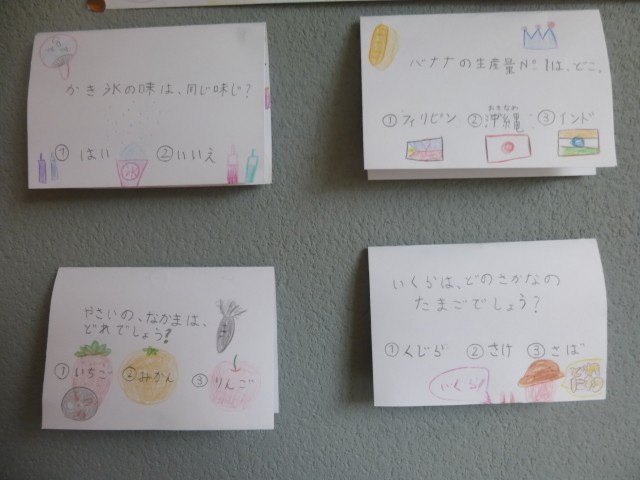 かき氷の味は、同じ味じ?
①はい ②いいえ
氷
バナナの生産量No.1は、どこ。
①フィリピン ②沖縄 ③インド
おきなわ
やさいの、なかまは、
どれでしょう?
①いちご ②みかん ③りんご
いくらは、どのさかなの
たまごでしょう?
①くじら ②さけ ③さば
いくら!